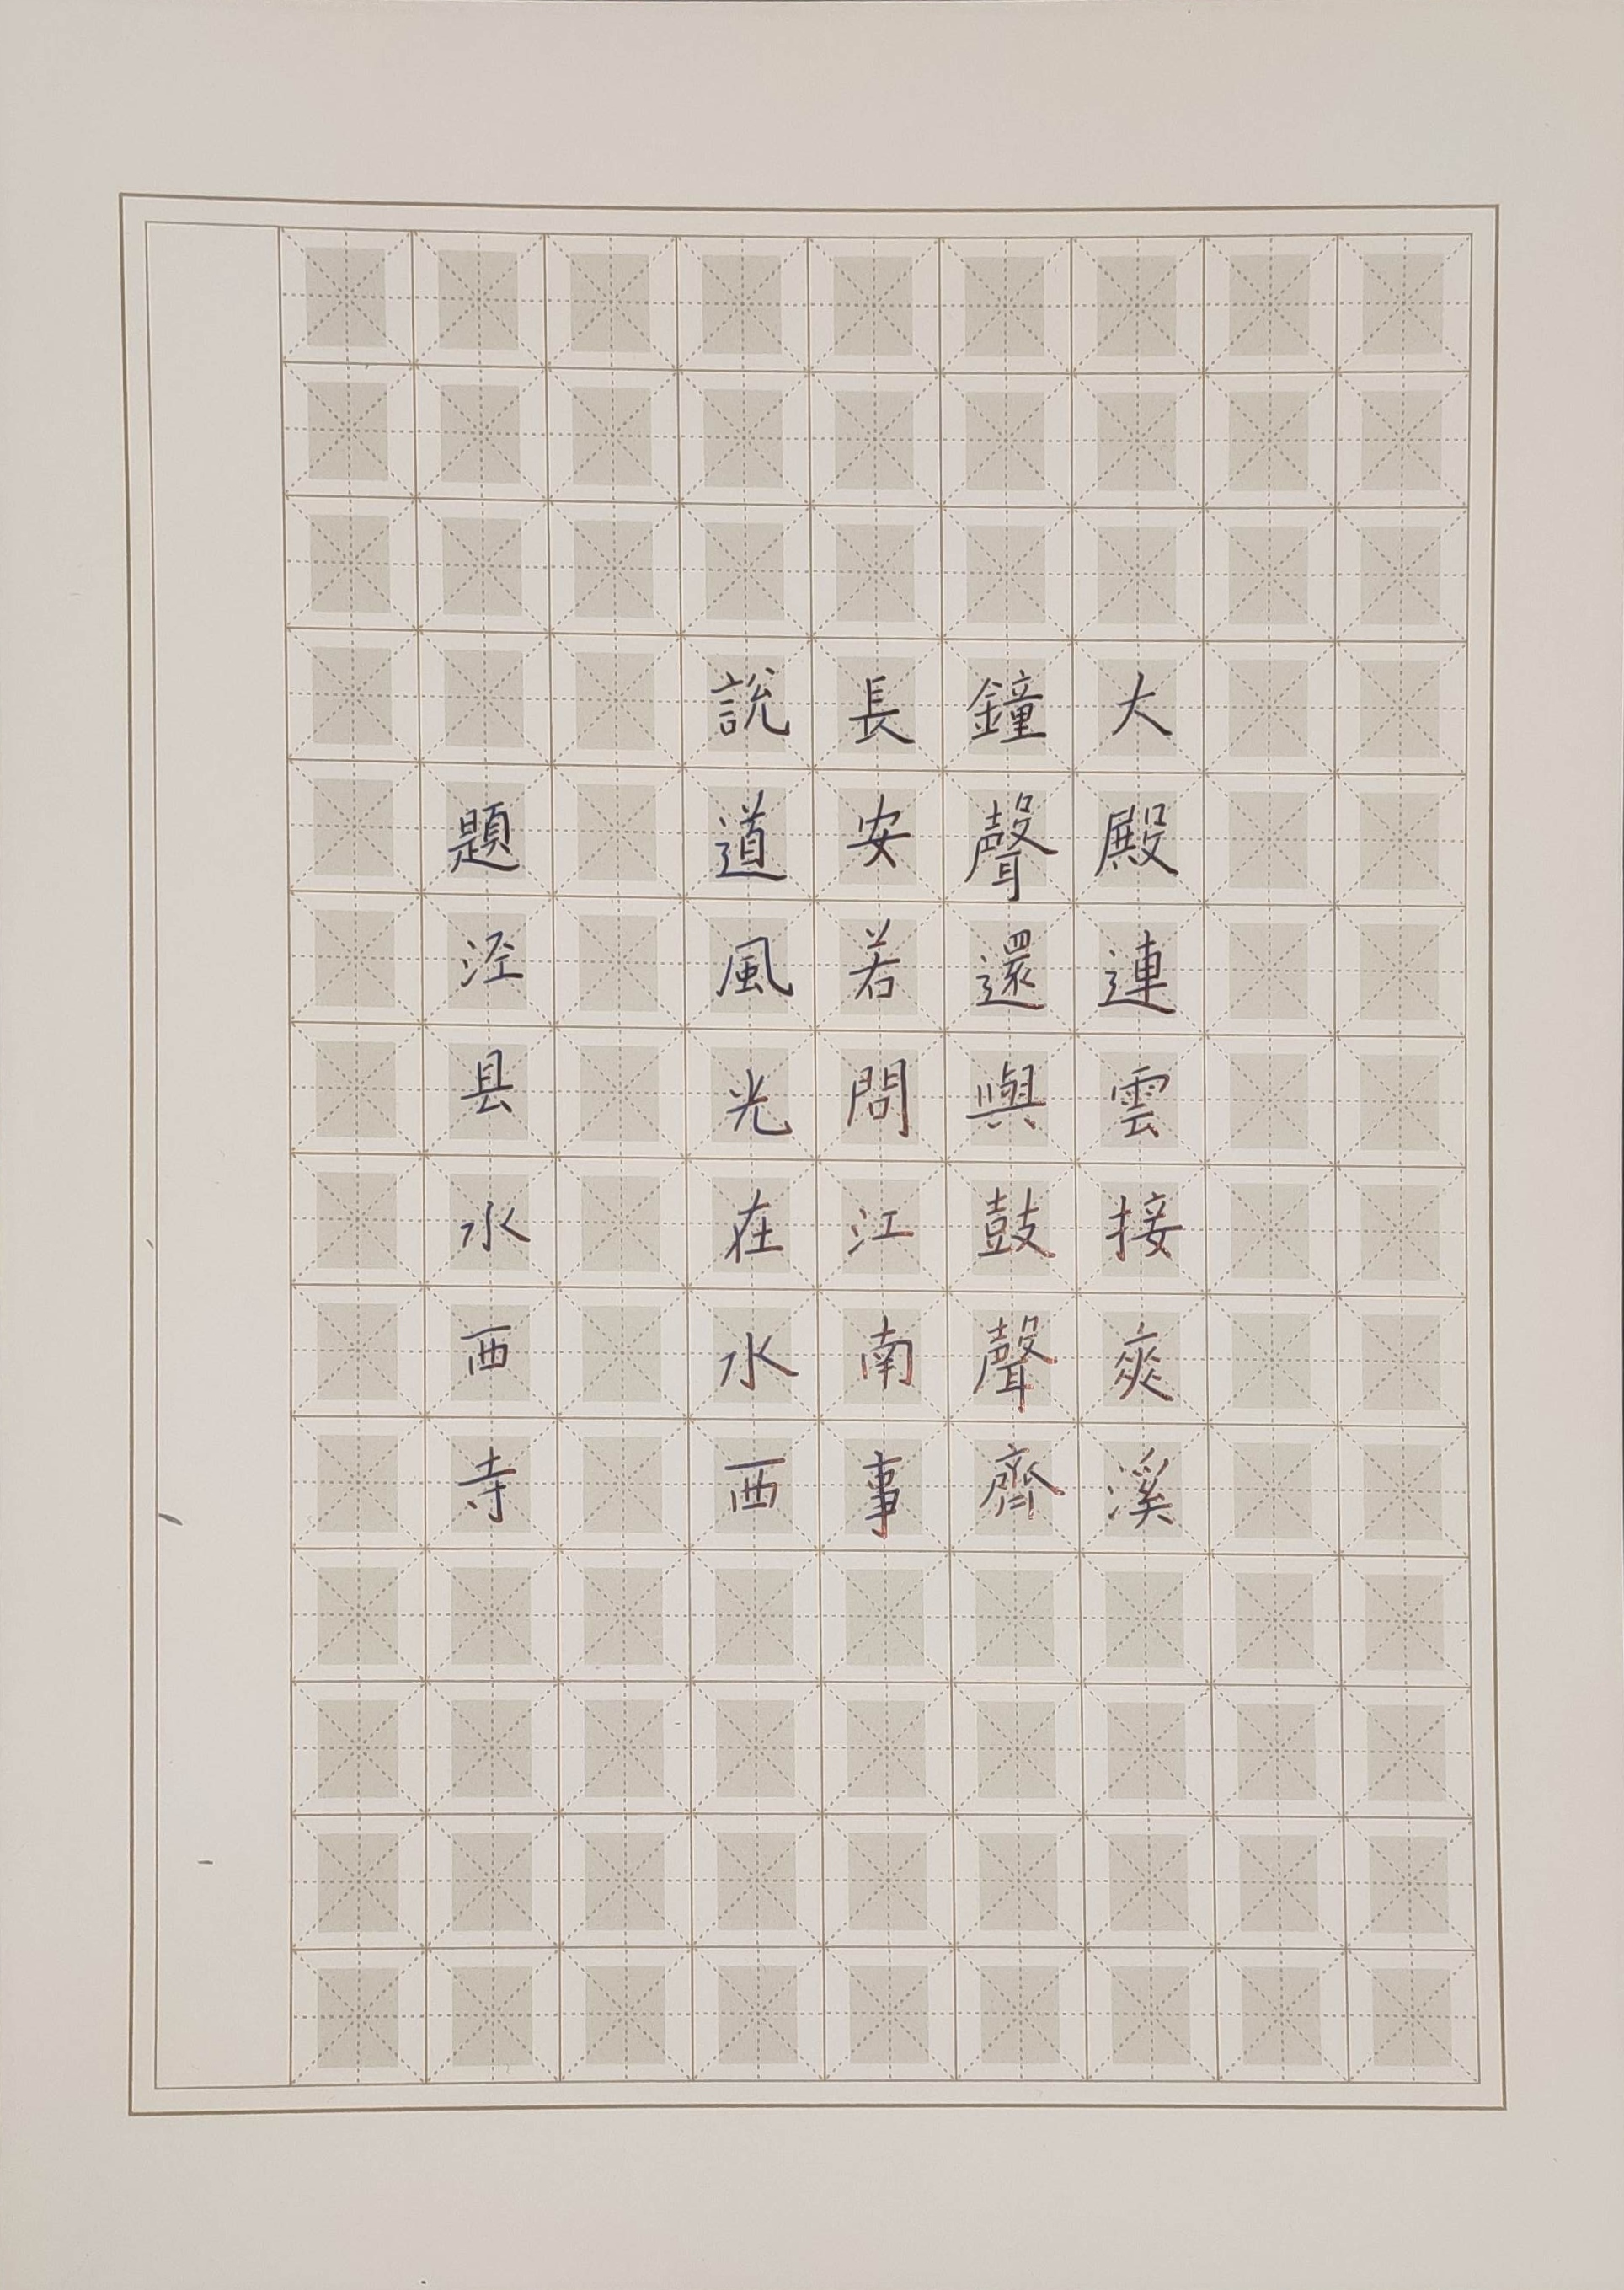 大殿連雲接爽溪
鐘聲還與鼓聲齊
長安若問江南事
說道風光在水西
題泾县水西寺